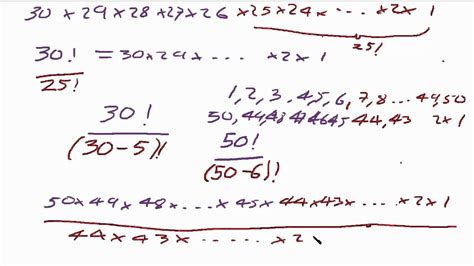 30 × 29 × 28 × 27 × 26 × 25 × 24 × ... × 2 × 1
25!
30! / 25! = 30 × 29 × ... × 2 × 1
1, 2, 3, 4, 5, 6, 7, 8 ... 49, 50
50, 49, 48 47 46 45 44, 43 2 × 1
30! / (30-5)!
50! / (50-6)!
50 × 49 × 48 × ... × 45 × 44 × 43 × ... × 2 × 1
44 × 43 × ..... × 2